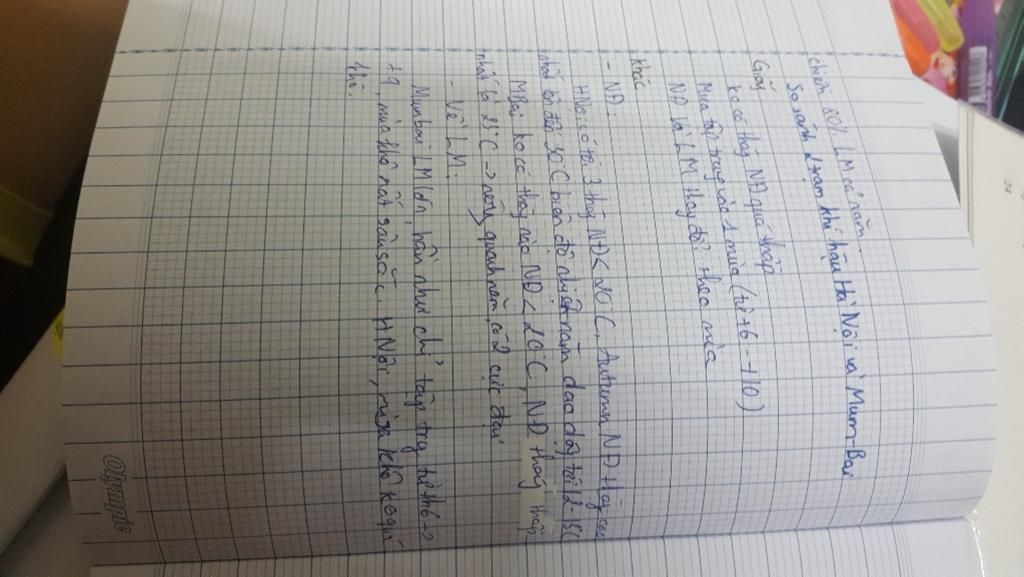 chiếm 80% LM cả năm.
So sánh 2 trạm khí hậu Hà Nội và Mum-Bai
Giống
ko có tháng NĐ quá thấp
Mưa tập trung vào 1 mùa (từ t6 → 10)
NĐ và LM thay đổi theo mùa
khác
- NĐ:
HNội có tới 3 tháng NĐ < 20°C, Autumn NĐ tháng cao
nhất lên đến 30°C biên độ nhiệt năm dao động tới 12-15°C
MBai ko có tháng nào NĐ < 20°C, NĐ tháng thấp
nhất là 23°C → nóng quanh năm, có 2 cực đại
- Về LM.
Mumbai LM lớn, hầu như chỉ tập trg từ th6 →
t9, mùa khô rất sâu sắc. HNội, mùa khô k quá
khô.
Olympic